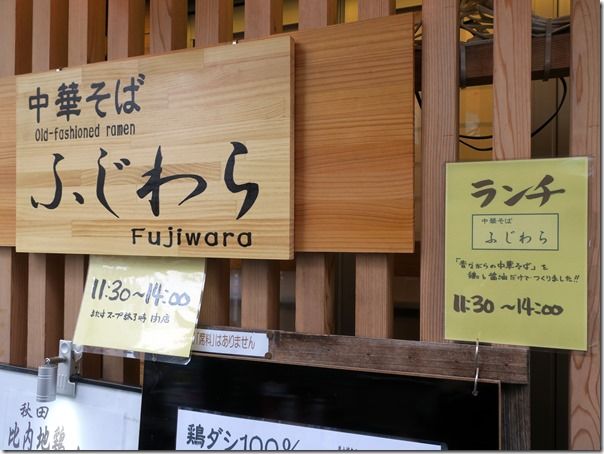 中華そば
Old-fashioned ramen
ふじわら
Fujiwara
11:30〜14:00
またはスープ終了時閉店
ランチ
中華そば
ふじわら
「昔ながらの中華そば」を
鶏と醤油だけでつくりました!!
11:30〜14:00
「席料」はありません
秋田
比内地鶏
鶏ダシ100%